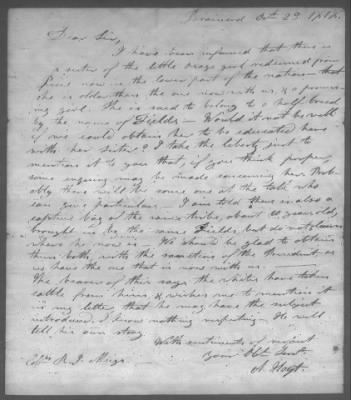 Brainerd Octr 29 1818.
Dear Sir,
I have been informed that there is
a sister of the little osage girl redeemed from
now in the lower part of the nation - that
she is older than the one now with us, & a promis
ing girl. She is said to belong to a half breed
by the name of Fields - Would it not be well
if we could obtain her to be educated here
with her sister? I take the liberty just to
mention it to you that, if you think proper,
some inquiry may be made concerning her. Prob-
ably there will be some one at the talk who
can give particulars. I am told there is also a
captive boy of the same tribe, about 10 years old,
brought in by the same Fields, but do not learn
where he now is. We should be glad to obtain
them both, with the sanction of the President as
we have the one that is now with us.
The bearer of this says the whites have taken
cattle from him & wishes me to mention it
in my letter that he may have the subject
introduced. I know nothing respecting it. He will
tell his own story
With sentiments of
your Obt. Servt.
A. Hoyt.
R. J. Meigs